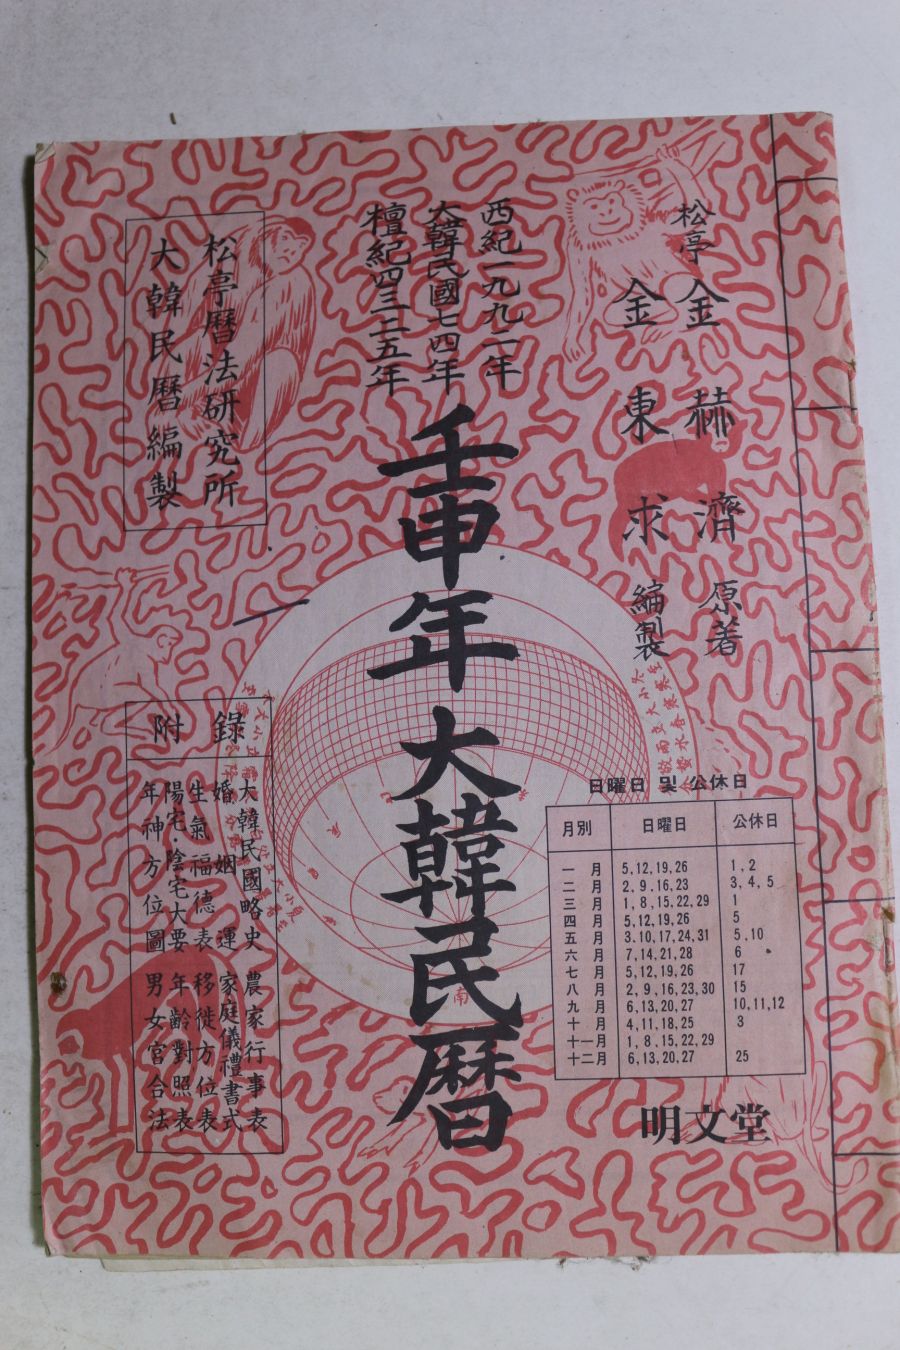 松亭 金赫濟 原著
金東求 編製
西紀一九九二年
大韓民國七四年
檀紀四三二五年
壬申年 大韓民曆
松亭曆法研究所
大韓民曆編製
附錄
大韓民國略史 農家行事表
婚姻運 家庭儀禮書式
生氣福德表 移徙方位表
陽宅·陰宅大要 年齡對照表
年神方位圖 男女宮合法
日曜日 및 公休日
月別 日曜日 公休日
一月 5,12,19,26 1,2
二月 2,9,16,23 3,4,5
三月 1,8,15,22,29 1
四月 5,12,19,26 5
五月 3,10,17,24,31 5,10
六月 7,14,21,28 6
七月 5,12,19,26 17
八月 2,9,16,23,30 15
九月 6,13,20,27 10,11,12
十月 4,11,18,25 3
十一月 1,8,15,22,29
十二月 6,13,20,27 25
南
明文堂